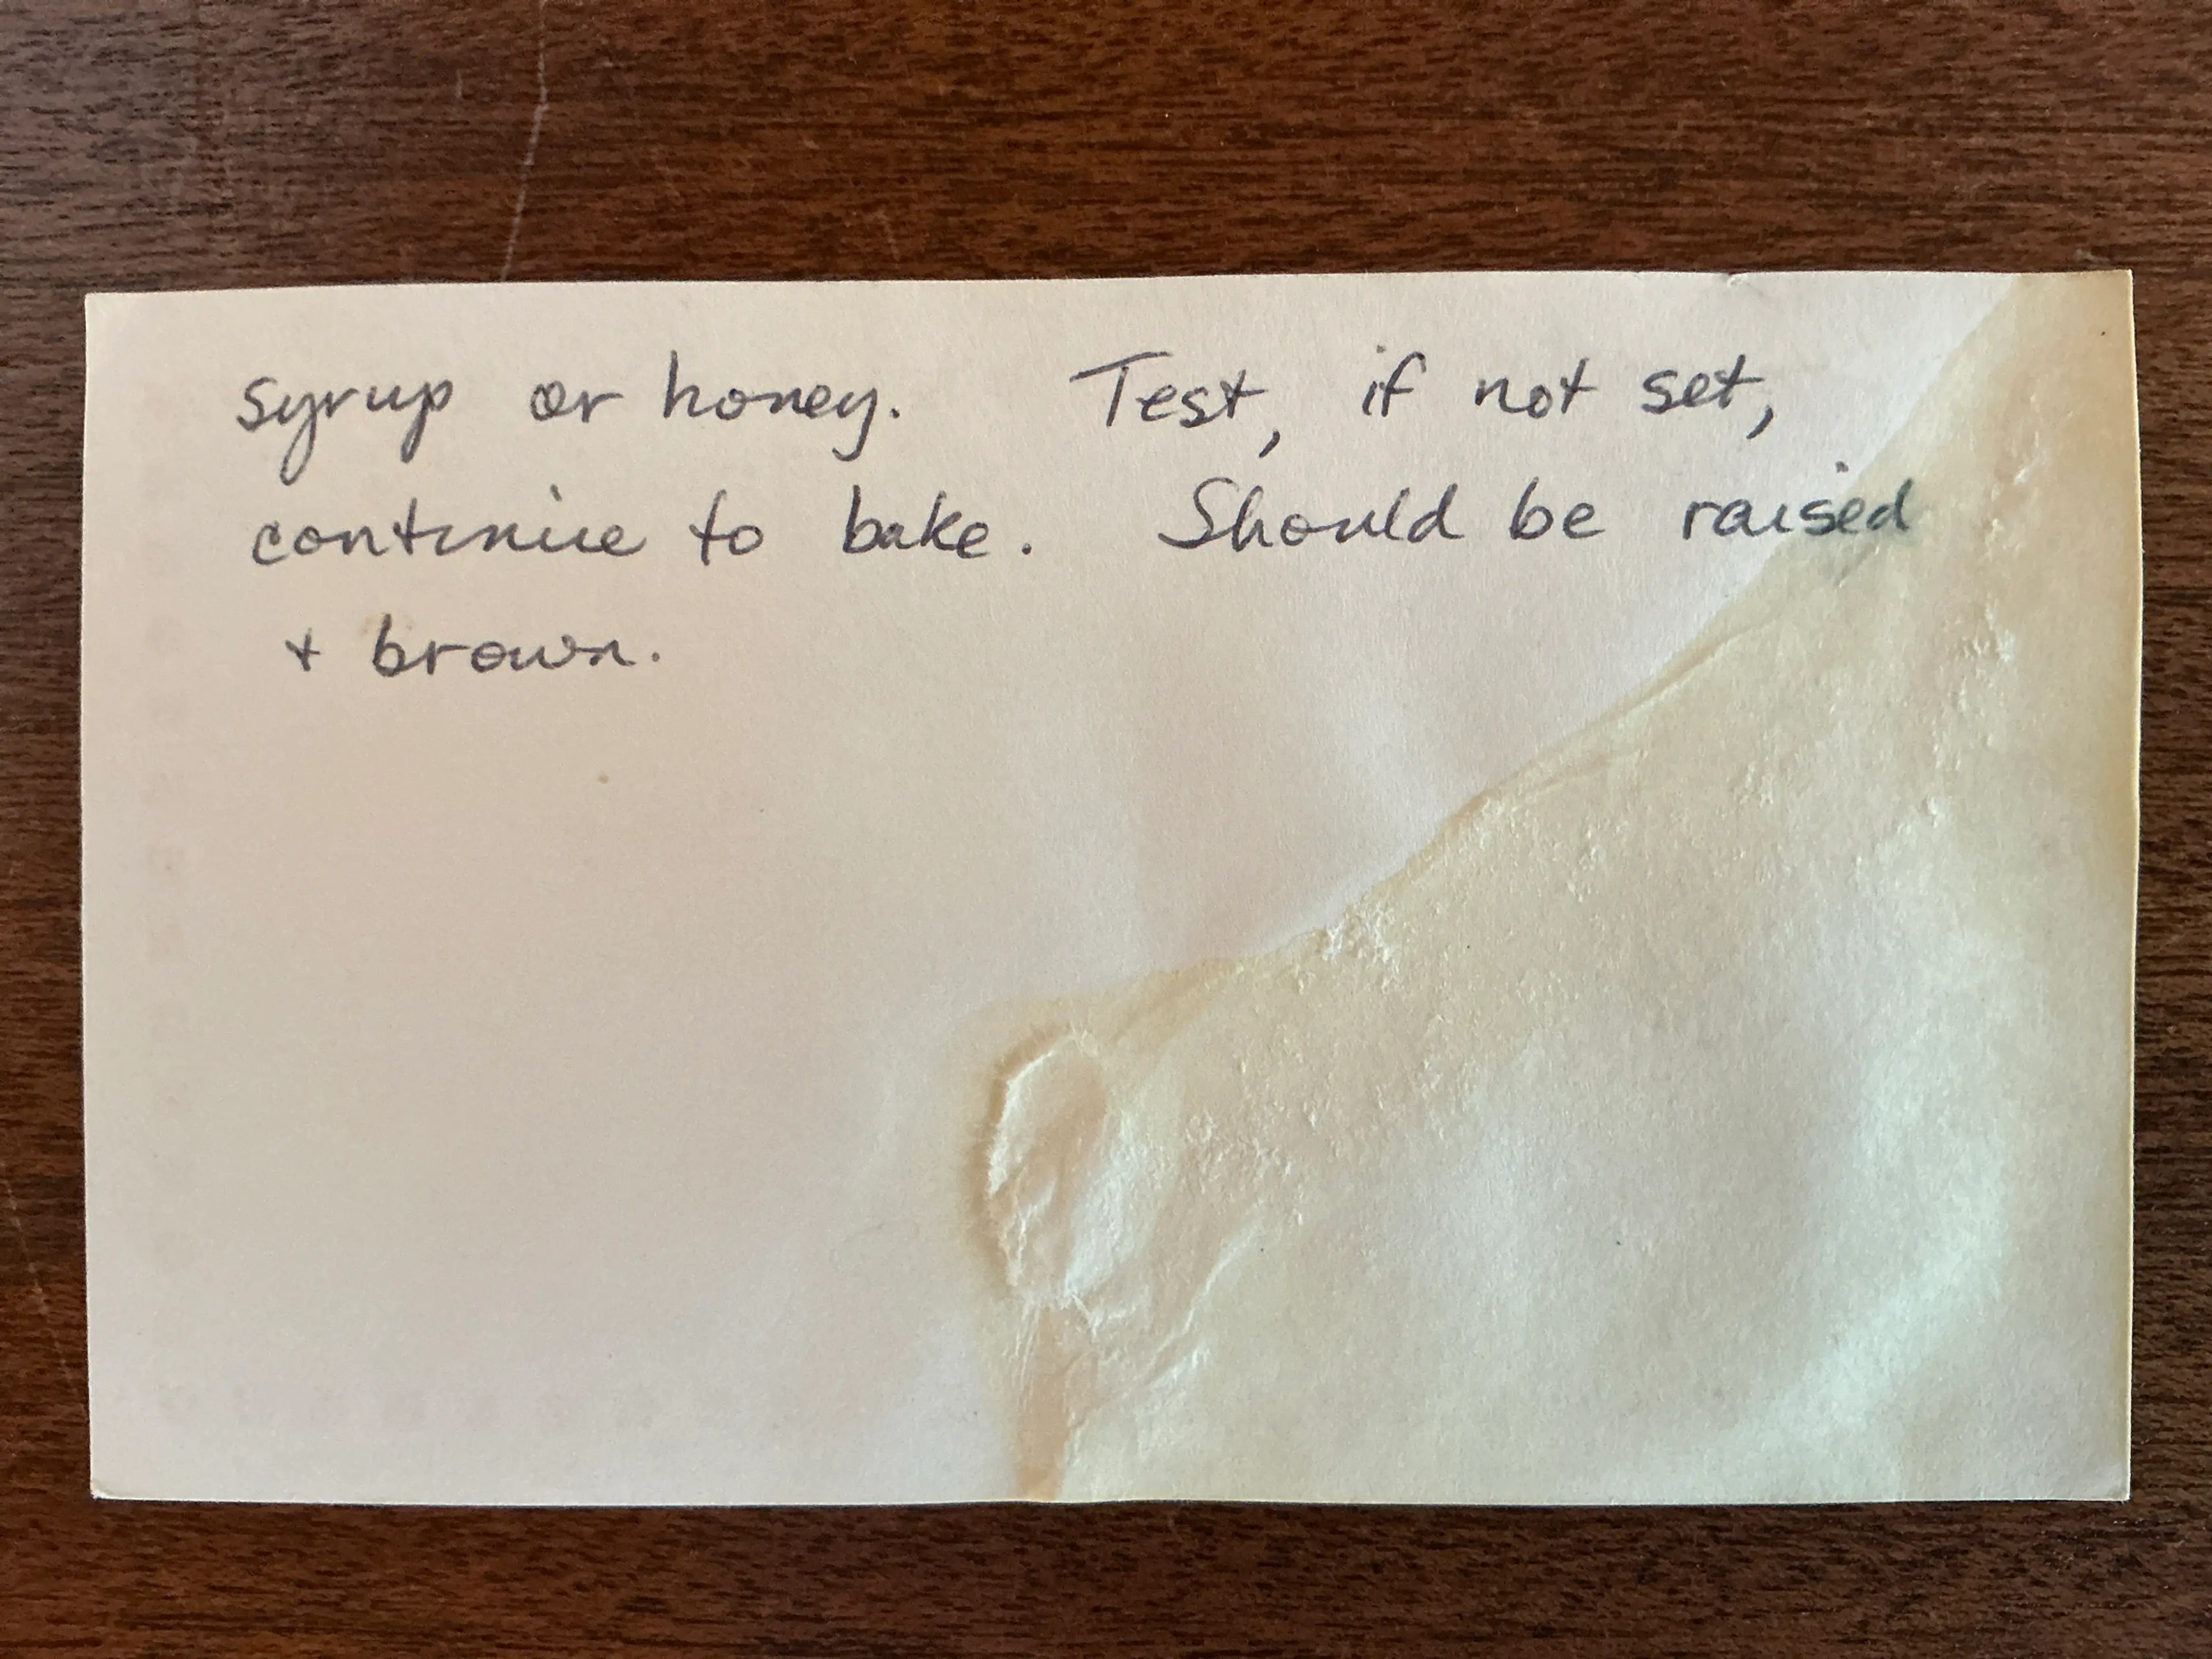 syrup or honey. Test, if not set,
continue to bake. Should be raised
+ brown.